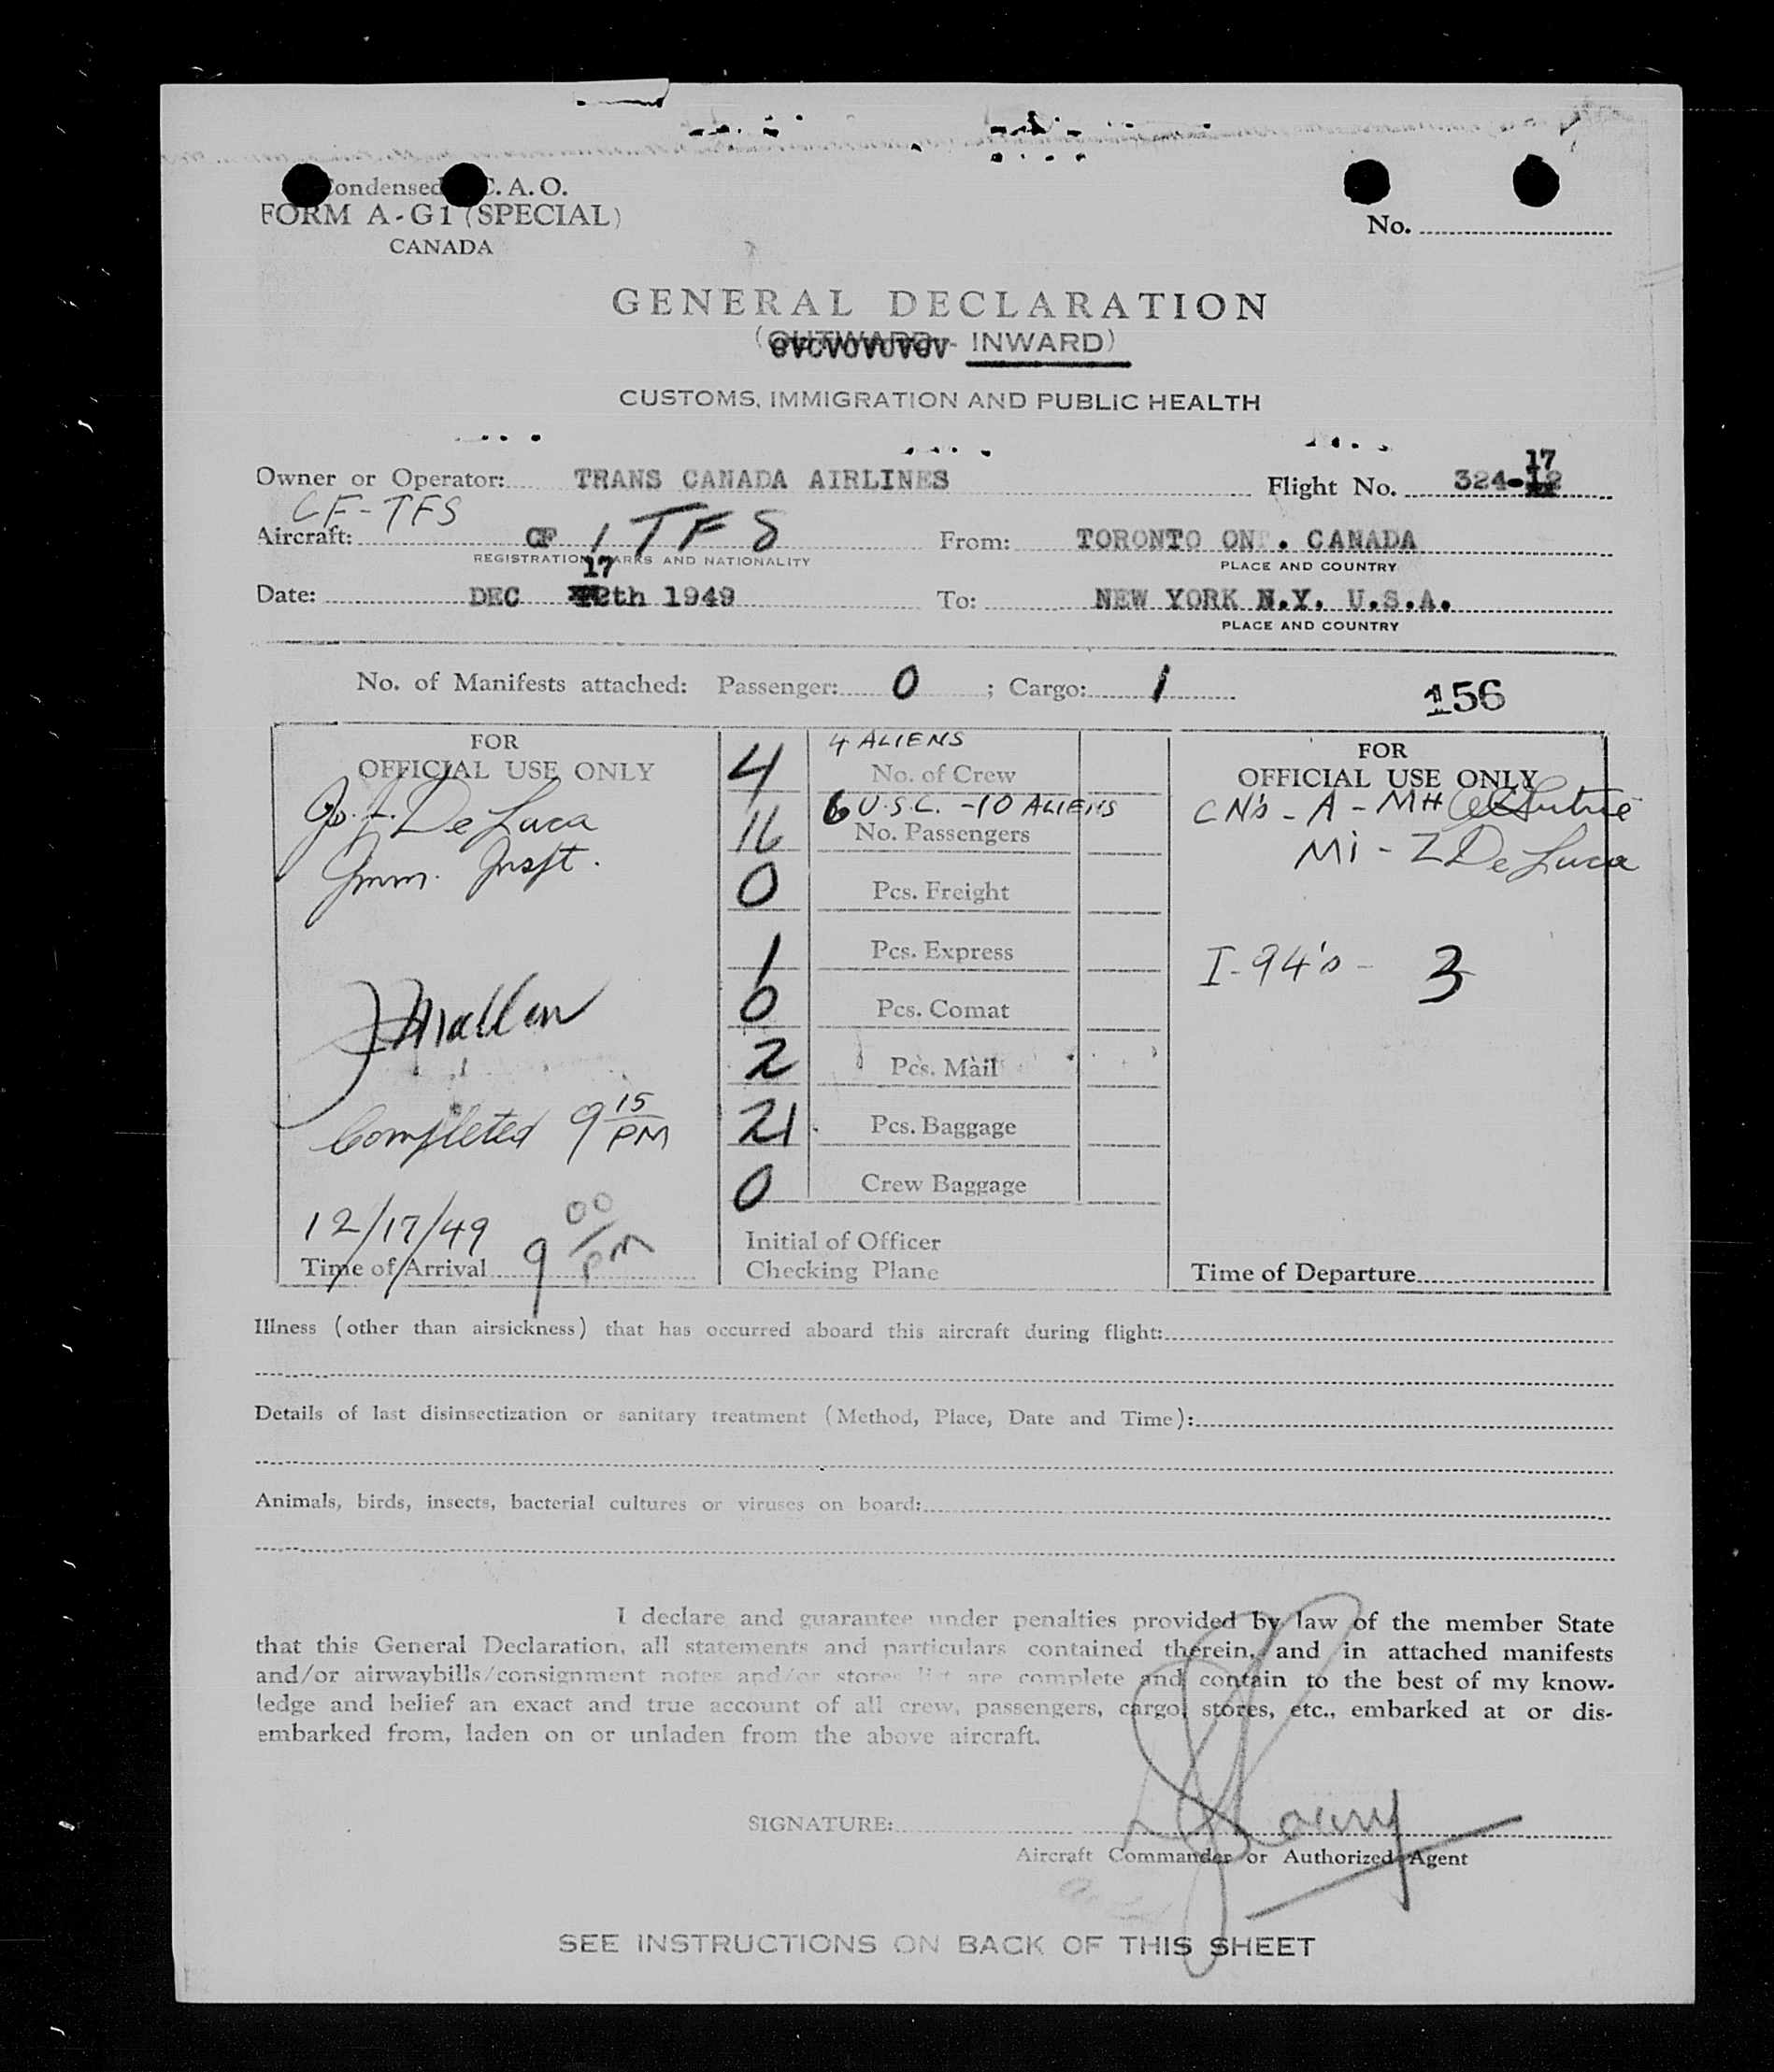 Condensed C. A. O.
FORM A-G1 (SPECIAL)
CANADA
No.
GENERAL DECLARATION
(OUTWARD - INWARD)
CUSTOMS, IMMIGRATION AND PUBLIC HEALTH
Owner or Operator: TRANS CANADA AIRLINES
17
Flight No. 324-12
CF-TFS
Aircraft: CF TFS
REGISTRATION MARKS AND NATIONALITY
From: TORONTO ONT. CANADA
PLACE AND COUNTRY
17
Date: DEC 12th 1949
To: NEW YORK N.Y. U.S.A.
PLACE AND COUNTRY
No. of Manifests attached: Passenger: 0 ; Cargo: 1
156
FOR
OFFICIAL USE ONLY
De Luca
Imm. Inspt.
Completed 9 15 PM
12/17/49
Time of Arrival 9 00 PM
4 ALIENS
4 No. of Crew
6 U.S.C. -10 ALIENS
16 No. Passengers
0 Pcs. Freight
1 Pcs. Express
0 Pcs. Comat
2 Pcs. Mail
21 Pcs. Baggage
0 Crew Baggage
Initial of Officer
Checking Plane
FOR
OFFICIAL USE ONLY
CN's - A - MH
Mi - Z De Luca
I-94's - 3
Time of Departure
Illness (other than airsickness) that has occurred aboard this aircraft during flight:
Details of last disinsectization or sanitary treatment (Method, Place, Date and Time):
Animals, birds, insects, bacterial cultures or viruses on board:
I declare and guarantee under penalties provided by law of the member State
that this General Declaration, all statements and particulars contained therein, and in attached manifests
and/or airwaybills/consignment notes and/or stores list are complete and contain to the best of my know-
ledge and belief an exact and true account of all crew, passengers, cargo, stores, etc., embarked at or dis-
embarked from, laden on or unladen from the above aircraft.
SIGNATURE:
Aircraft Commander or Authorized Agent
SEE INSTRUCTIONS ON BACK OF THIS SHEET